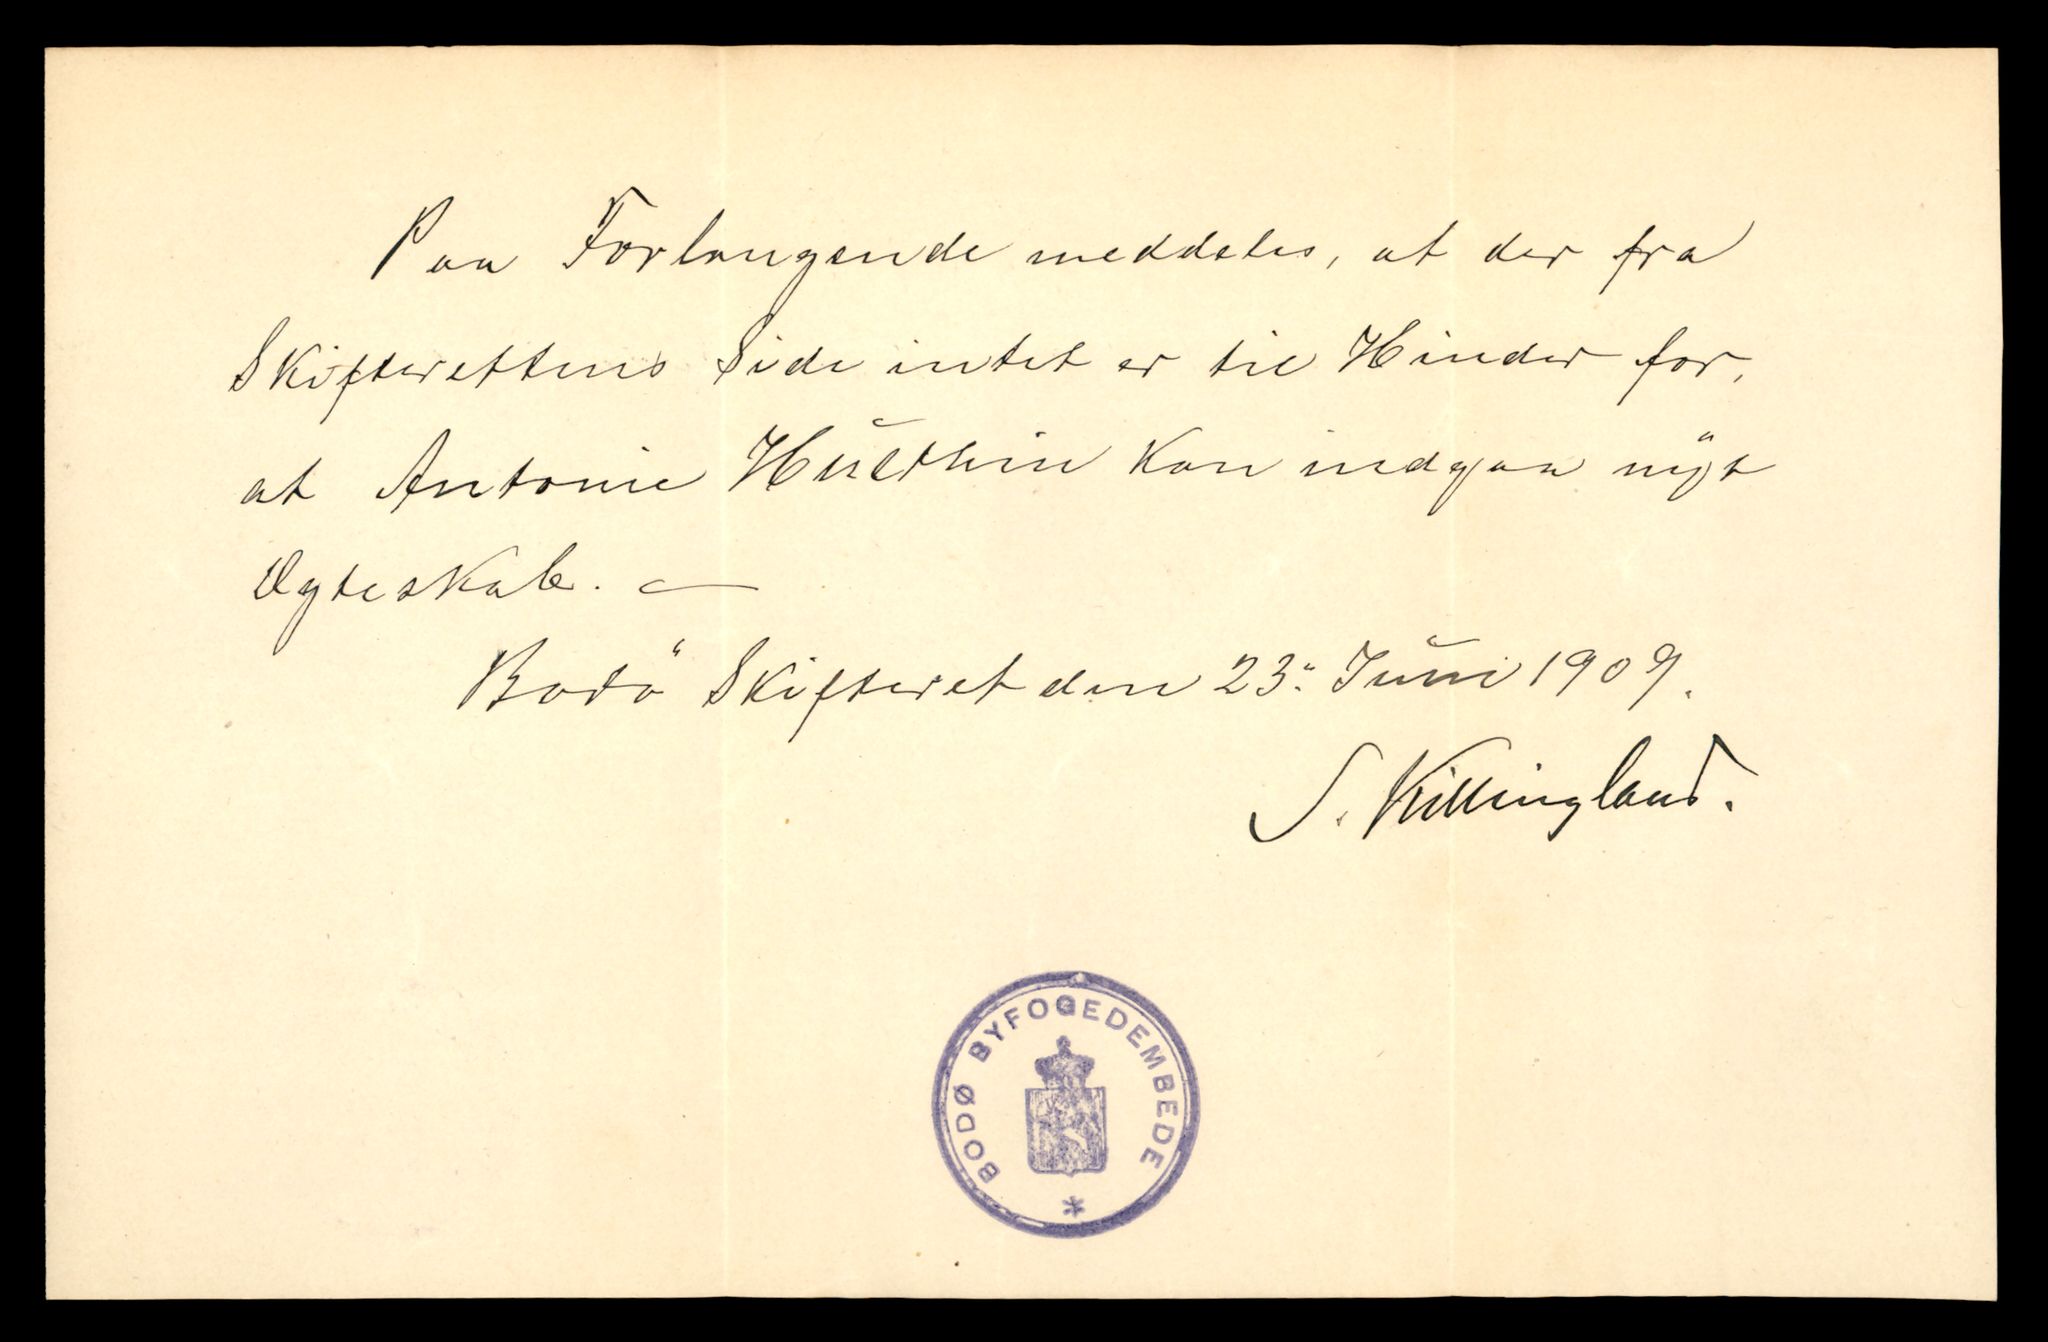 Paa Forlangende meddeles, at der fra
Skifterettens Side intet er til Hinder for,
at Antonie Hulthin kan indgaa nÿt
Ægteskab. —
Bodö Skifteret den 23. Juni 1909.
S. Killingland.
BODØ BYFOGEDEMBEDE
*